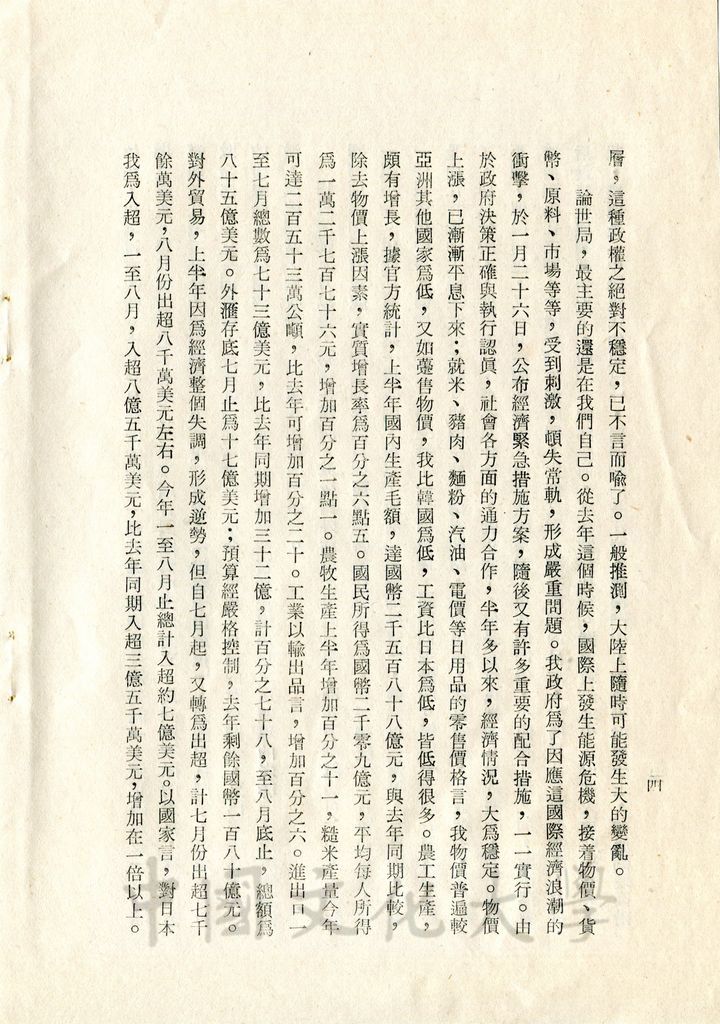 層，這種政權之絕對不穩定，已不言而喻了。一般推測，大陸上隨時可能發生大的變亂。
論世局，最主要的還是在我們自己。從去年這個時候，國際上發生能源危機，接着物價、貨
幣、原料、市場等等，受到刺激，頓失常軌，形成嚴重問題。我政府爲了因應這國際經濟浪潮的
衝擊，於一月二十六日，公布經濟緊急措施方案，隨後又有許多重要的配合措施，一一實行。由
於政府決策正確與執行認眞，社會各方面的通力合作，半年多以來，經濟情況，大爲穩定。物價
上漲，已漸漸平息下來；就米、豬肉、麵粉、汽油、電價等日用品的零售價格言，我物價普遍較
亞洲其他國家爲低，又如躉售物價，我比韓國爲低，工資比日本爲低，皆低得很多。農工生產，
頗有增長，據官方統計，上半年國內生產毛額，達國幣二千五百八十八億元，與去年同期比較，
除去物價上漲因素，實質增長率爲百分之六點五。國民所得爲國幣二千零九億元，平均每人所得
爲一萬二千七百七十六元，增加百分之一點一。農牧生產上半年增加百分之十一，糙米產量今年
可達二百五十三萬公噸，比去年可增加百分之二十。工業以輸出品言，增加百分之六。進出口一
至七月總數爲七十三億美元，比去年同期增加三十二億，計百分之七十八，至八月底止，總額爲
八十五億美元。外滙存底七月止爲十七億美元；預算經嚴格控制，去年剩餘國幣一百八十億元。
對外貿易，上半年因爲經濟整個失調，形成逆勢，但自七月起，又轉爲出超，計七月份出超七千
餘萬美元，八月份出超八千萬美元左右。今年一至八月止總計入超約七億美元。以國家言，對日本
我爲入超，一至八月，入超八億五千萬美元，比去年同期入超三億五千萬美元，增加在一倍以上。
四
中國文化大學